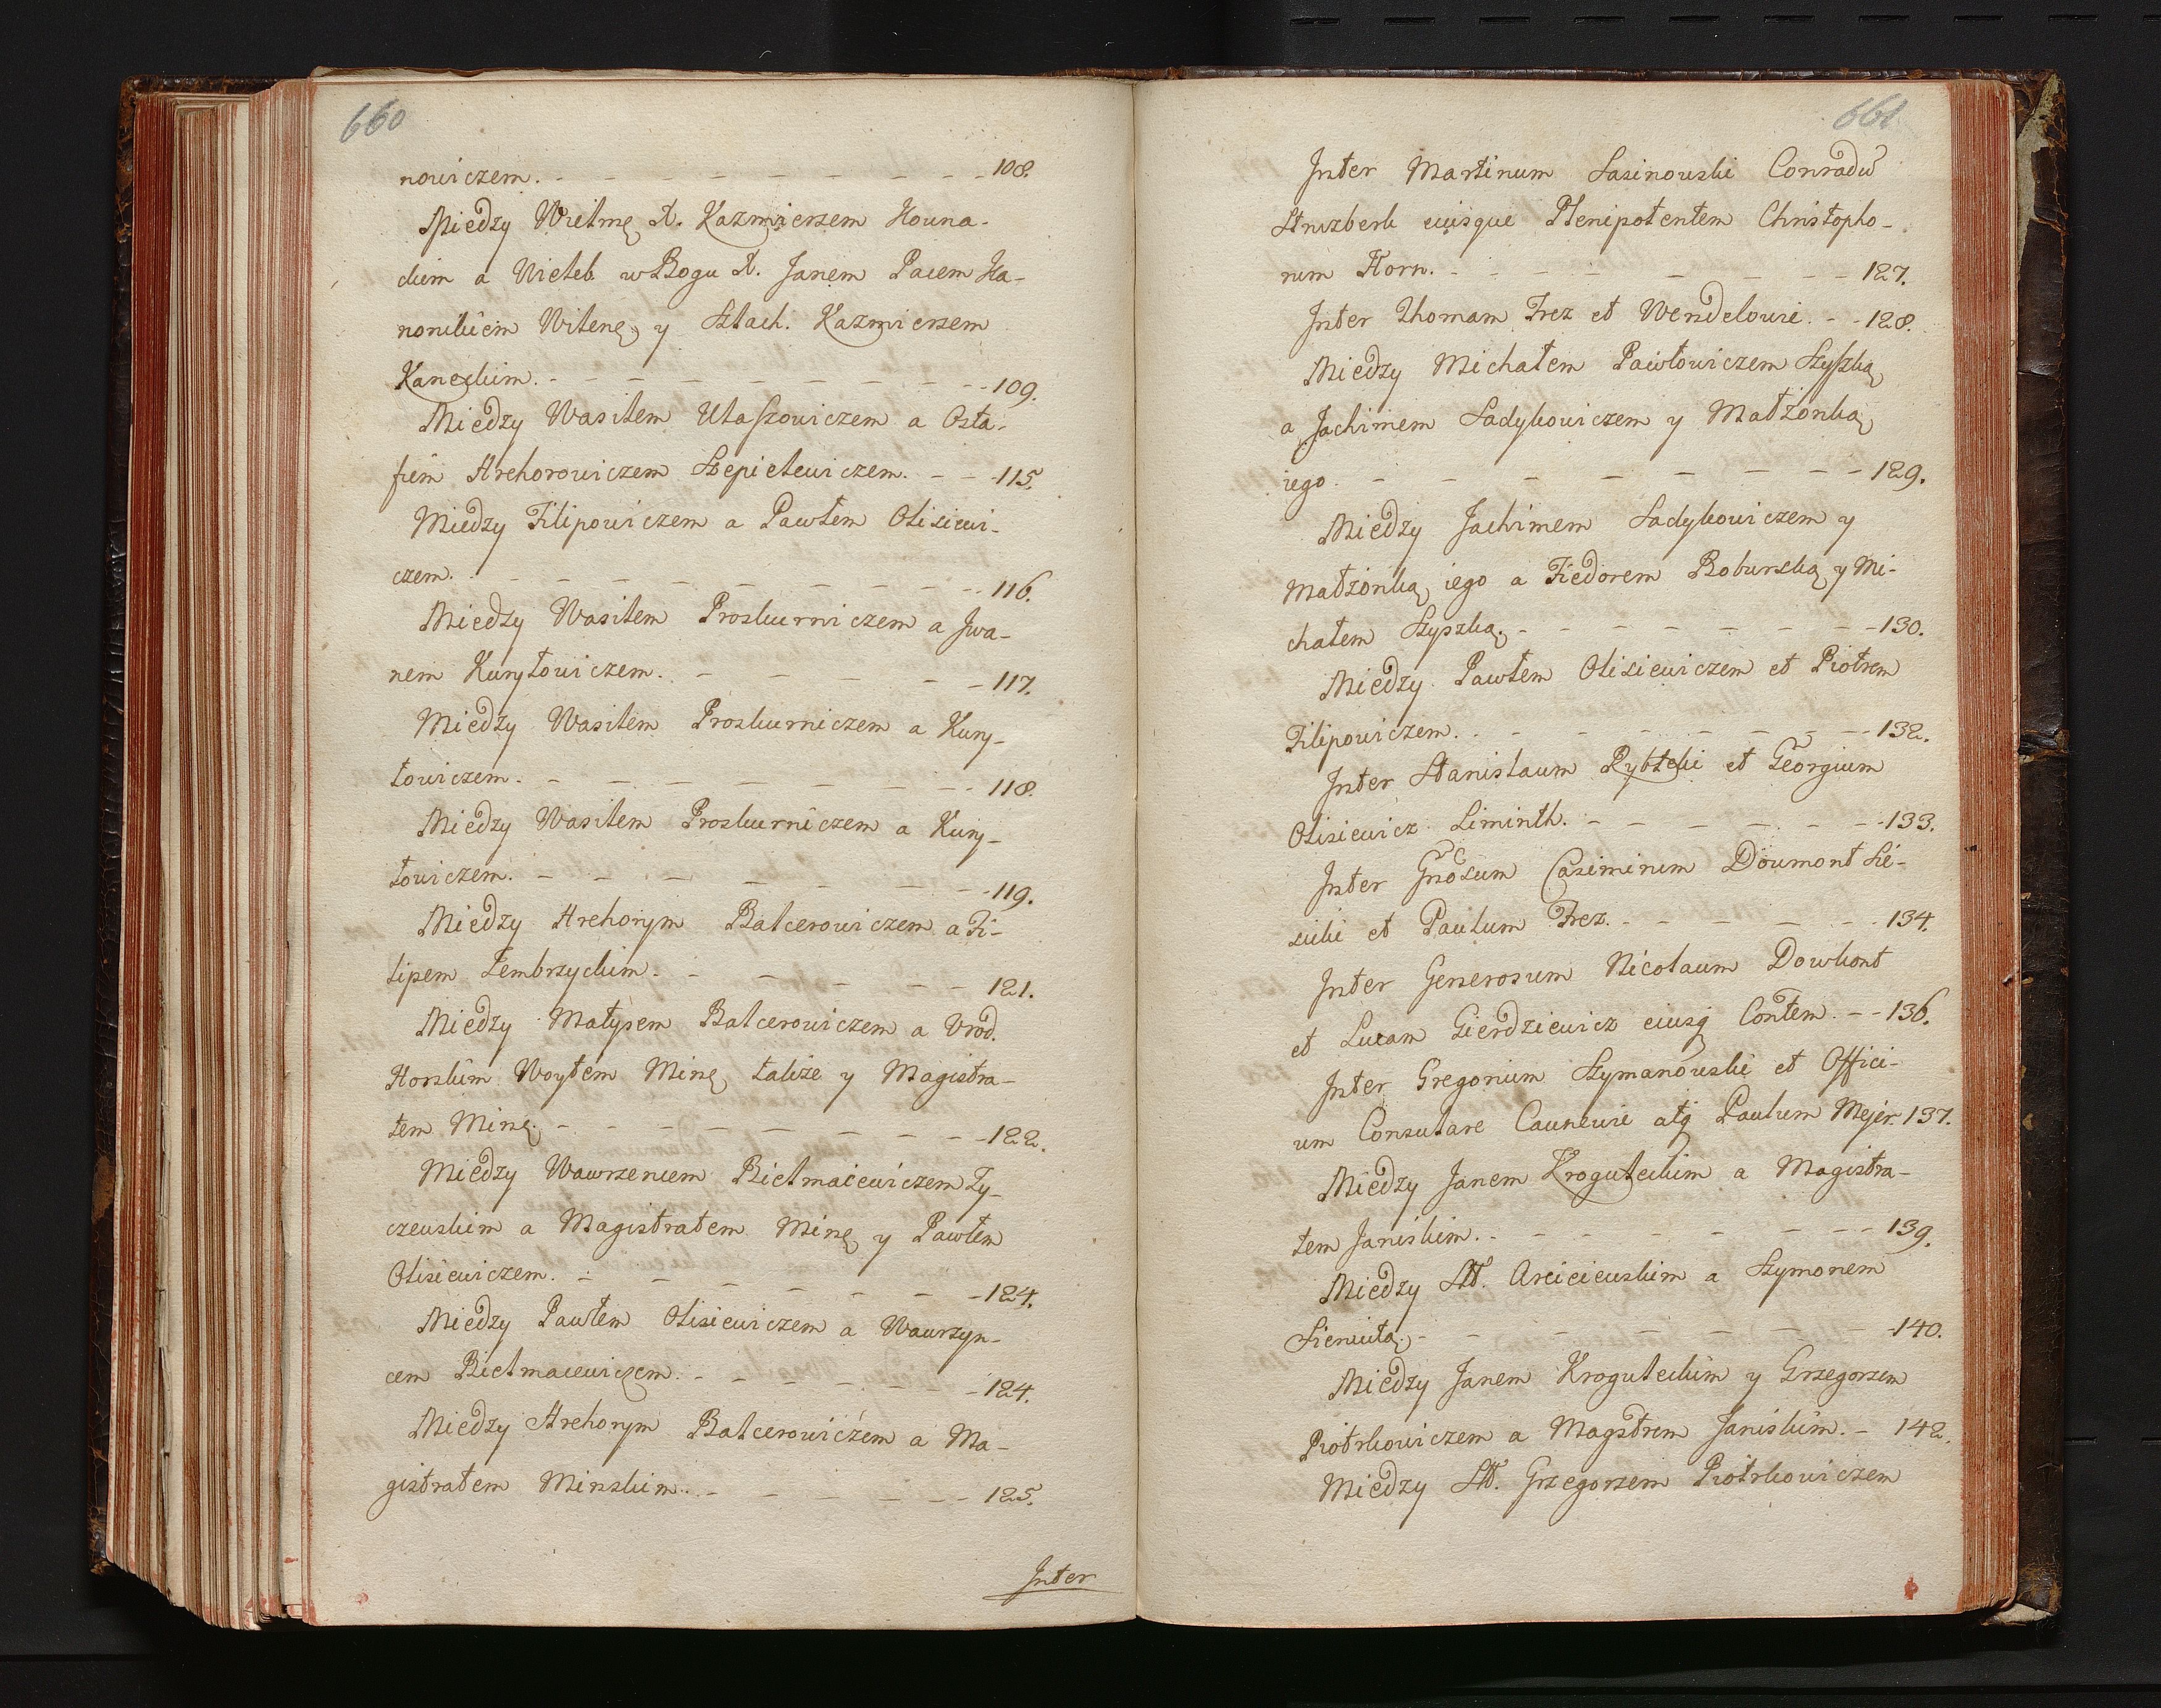 660
nowiczem. - - - - - - - - 108.
Między Wielmę X. Kazmierzem Howna-
ckim a Wieleb. w Bogu X. Janem Pacem Ka-
nonikiem Wileńę y Szlach. Kazmierzem
Kaneckim. - - - - - - - - 109.
Między Wasilem Ułaszowiczem a Osta-
fim Hrehorowiczem Szepielewiczem. - - 115.
Miedzy Filipowiczem a Pawłem Olisiewi-
czem. - - - - - - - - 116.
Miedzy Wasilem Proskurniczem a Jwa-
nem Kuryłowiczem. - - - - - 117.
Miedzy Wasilem Proskurniczem a Kury-
łowiczem. - - - - - - - - 118.
Miedzy Wasilem Proskurniczem a Kury-
łowiczem. - - - - - - - - 119.
Miedzy Hrehorym Balcerowiczem a Fi-
lipem Zembrzyckim. - - - - - 121.
Miedzy Matysem Balcerowiczem a Vrod.
Horskim Woytem Minę także y Magistra-
tem Minę. - - - - - - - - 122.
Miedzy Wawrzencem Bielmacewiczem Ży-
czewskim a Magistratem Minę y Pawłem
Olisiewiczem. - - - - - - - 124.
Miedzy Pawłem Olisiewiczem a Wawrzyn-
cem Bielmacewiczem. - - - - - 124.
Miedzy Hrehorym Balcerowiczem a Ma-
gistratem Minskim. - - - - - 125.
Jnter
661
Jnter Martinum Sasinowski Conradũ
Strwzberk eiusque Plenipotentem Christopho-
rum Horn. - - - - - - - 127.
Jnter Thomam Frez et Wendelowie. - - 128.
Miedzy Michałem Pawłowiczem Szyszką
a Jachimem Sadykowiczem y Małżonką
iego. - - - - - - - - 129.
Miedzy Jachimem Sadykowiczem y
Małżonką iego a Fiedorem Boburską y Mi-
chałem Szyszką. - - - - - - 130.
Miedzy Pawłem Olisiewiczem et Piotrem
Filipowiczem. - - - - - - - 132.
Jnter Stanislaum Rybtcki et Georgium
Olisiewicz Liminth. - - - - - 133.
Jnter Gnosum Casimirum Dowmont Sie-
sicki et Paulum Frez. - - - - - 134.
Jnter Generosum Nicolaum Dowkont
et Lucam Gierdziewicz eiusq Contem. - - 136.
Jnter Gregorium Szymanowski et Offici-
um Consulare Caunense atq Paulum Mejer. 137.
Miedzy Janem Kroguleckim a Magistra-
tem Janiskim. - - - - - - 139.
Miedzy Sł. Arciciewskim a Szymonem
Sieniutą. - - - - - - - 140.
Miedzy Janem Kroguleckim y Grzegorzem
Piotrkowiczem a Magstrem Janiskim. - 142.
Miedzy Sł. Grzegorzem Piotrkowiczem